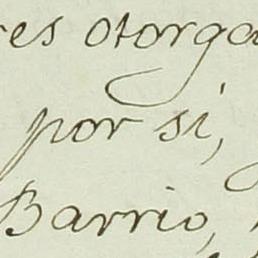 res otorga
por si,
Barrio,